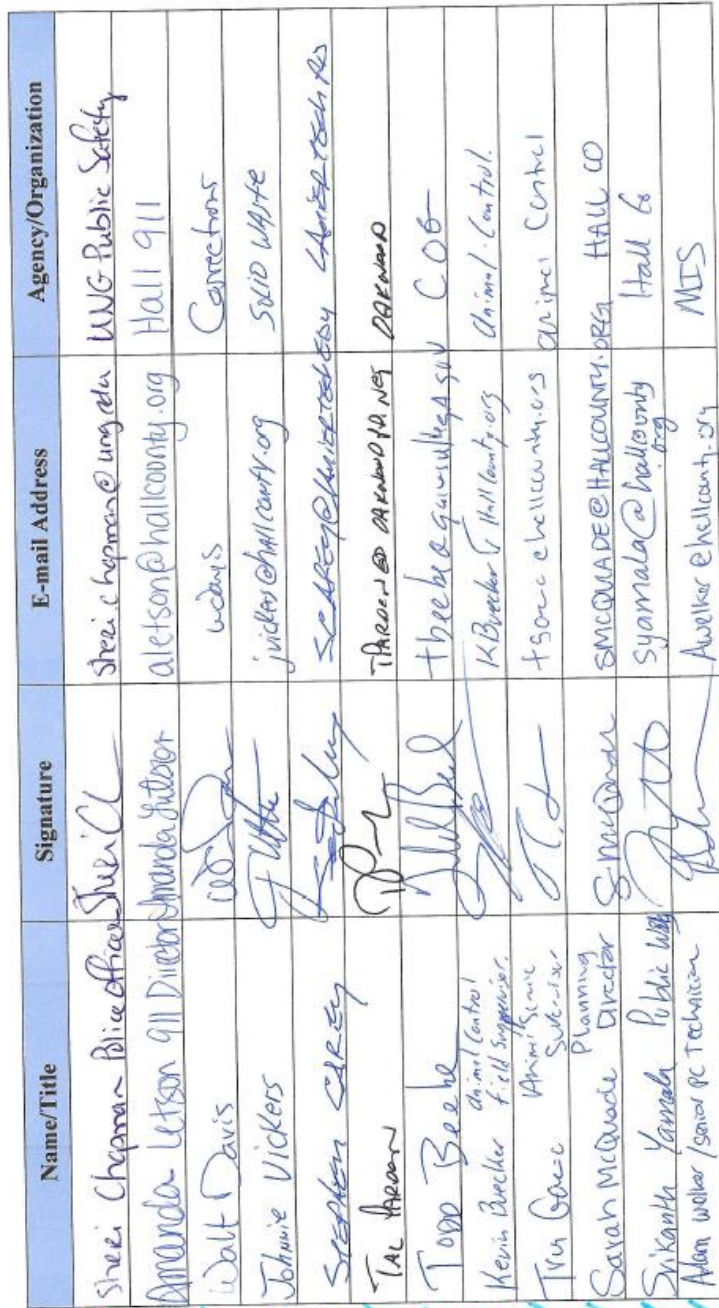 Name/Title Signature E-mail Address Agency/Organization
Sheri Chapman Police Officer Sheri C sheri.chapman@ung.edu UNG Public Safety
Amanda Letson 911 Director Amanda Letson aletson@hallcounty.org Hall 911
Walt Davis wdavis Corrections
Johnnie Vickers jvickers@hallcounty.org SOLID WASTE
STEPHEN CAREY LANIER TECH PD
TAL PARDEN OAKWOOD
TODD Beebe COG
Kevin Buecker Animal Control Field Supervisor. KBuecker@Hallcounty.org Animal Control.
Animal Control
Sarah McQuade Planning Director SMcQuade SMCQUADE@HALLCOUNTY.ORG HALL CO
Srikanth Yamala Public Works syamala@hallcounty.org Hall Co
Adam Walker / Senior PC Technician Awalker@hallcounty.org MIS